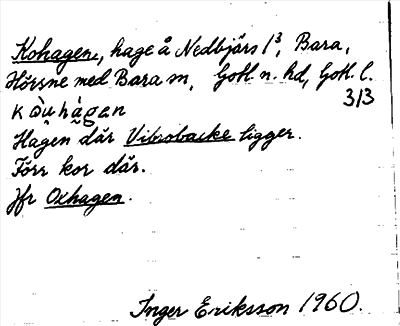 Kohagen, hage å Nedbjärs 1³, Bara,
Hörsne med Bara sn, Gotl. n. hd, Gotl. l.
313
Hagen där Vibrobacke ligger.
Förr kor där.
Jfr Oxhagen.
Inger Eriksson 1960.